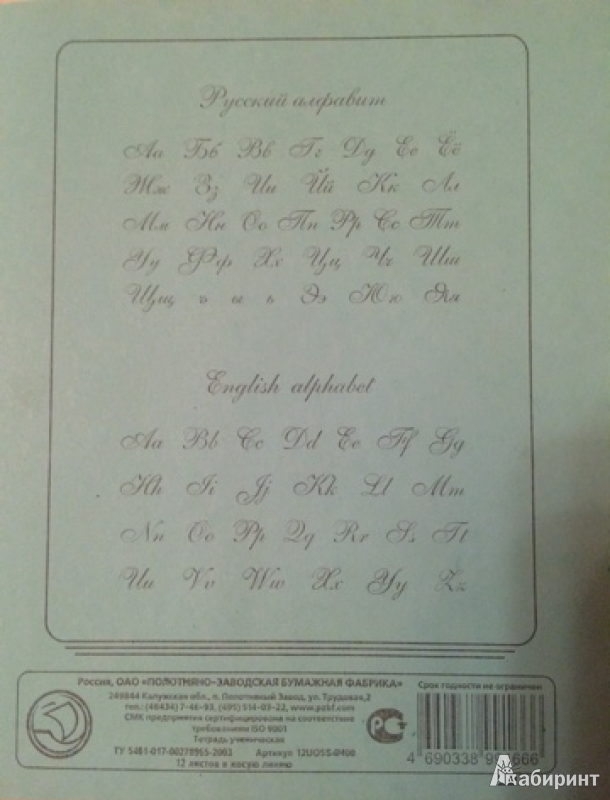 Русский алфавит
Аа Бб Вв Гг Дд Ее Ёё
Жж Зз Ии Йй Кк Лл
Мм Нн Оо Пп Рр Сс Тт
Уу Фф Хх Цц Чч Шш
Щщ ъ ы ь Ээ Юю Яя
English alphabet
Aa Bb Cc Dd Ee Ff Gg
Hh Ii Jj Kk Ll Mm
Nn Oo Pp Qq Rr Ss Tt
Uu Vv Ww Xx Yy Zz
Россия, ОАО «ПОЛОТНЯНО-ЗАВОДСКАЯ БУМАЖНАЯ ФАБРИКА»
249844 Калужская обл., п. Полотняный Завод, ул. Трудовая,2
тел.: (48434) 7-46-93, (495) 514-03-22, www.pzbf.com
СМК предприятия сертифицирована на соответствие
требованиям ISO 9001
Тетрадь ученическая
ТУ 5461-017-00278965-2003 Артикул 12U05S-0400
12 листов в косую линию
Срок годности не ограничен
4 690338 666
Лабиринт